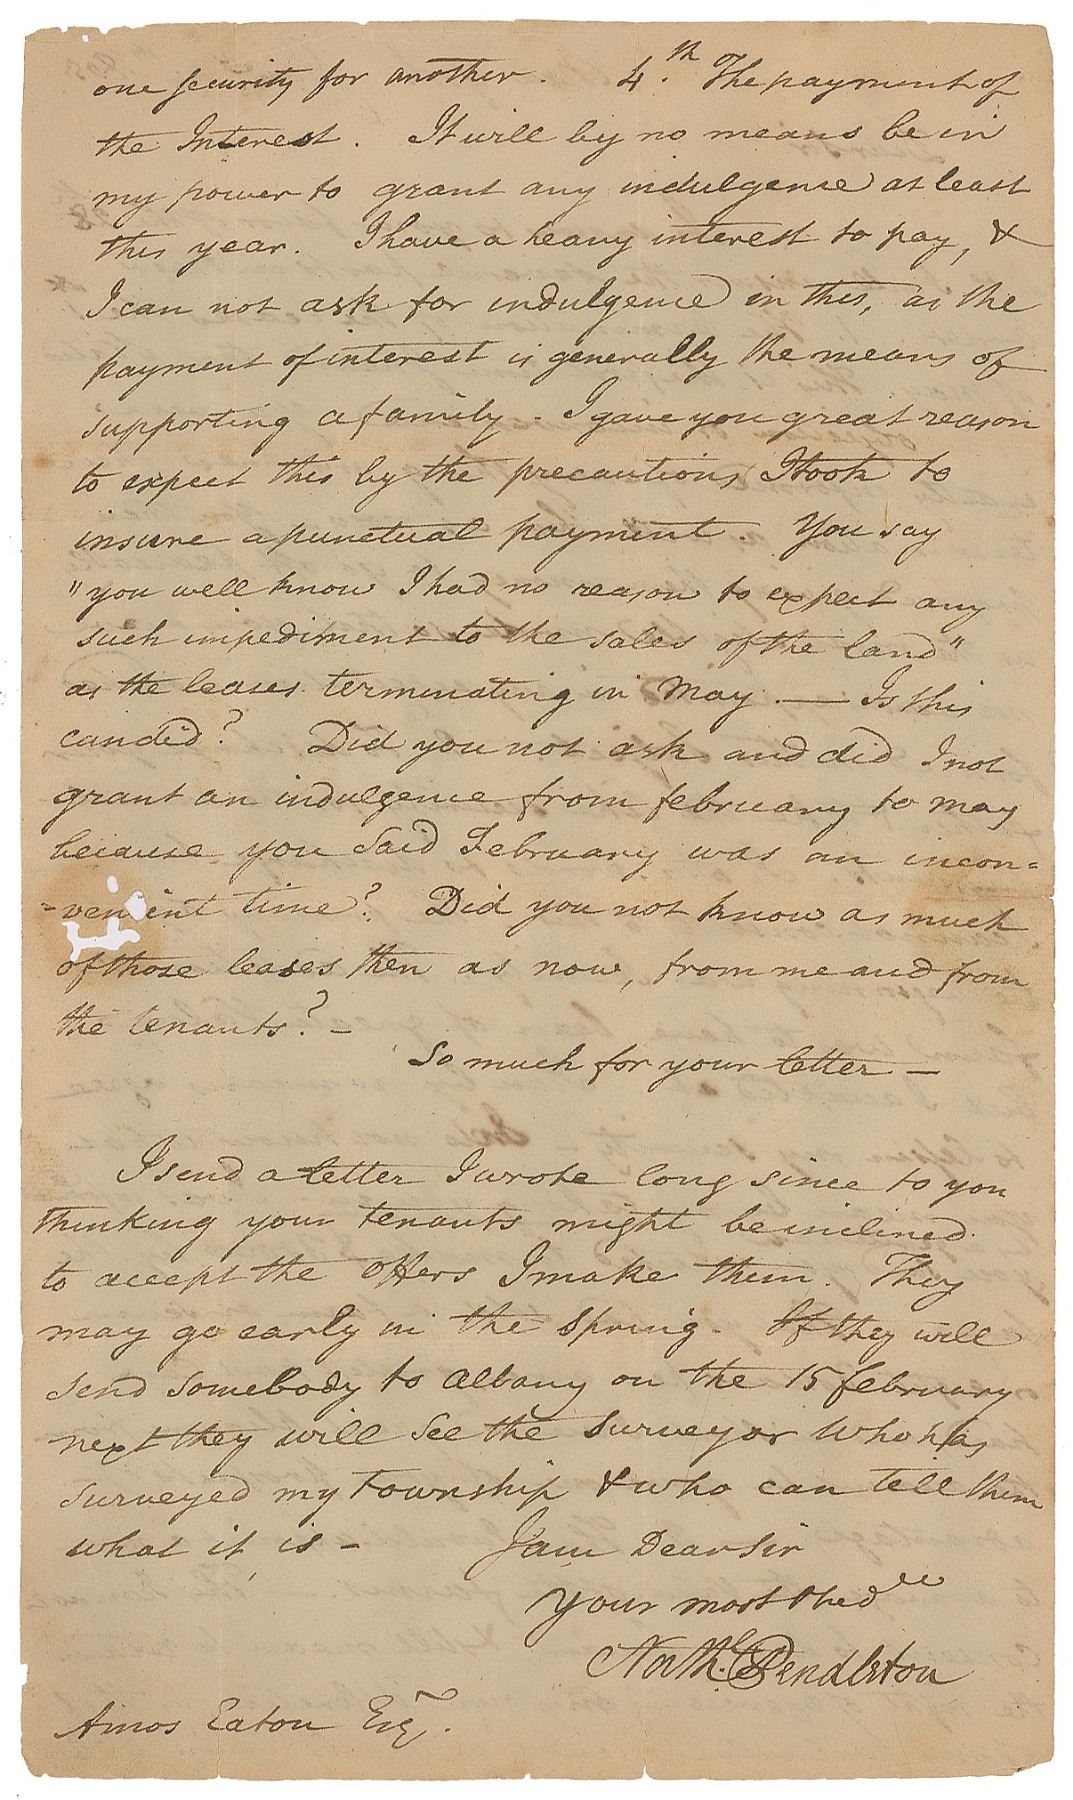 one security for another. 4.th The payment of
the Interest. It will by no means be in
my power to grant any indulgence at least
this year. I have a heavy interest to pay, &
I can not ask for indulgence in this, as the
payment of interest is generally the means of
supporting a family - I gave you great reason
to expect this by the precautions I took to
insure a punctual payment. You say
"you well know I had no reason to expect any
such impediment to the sales of the land"
as the leases terminating in May. — Is this
candid? Did you not ask and did I not
grant an indulgence from february to may
because you said February was an incon=
=venient time? Did you not know as much
of those leases then as now, from me and from
the tenants? -
So much for your letter —
I send a letter I wrote long since to you
thinking your tenants might be inclined
to accept the offers I make them. They
may go early in the Spring. If they will
send somebody to Albany on the 15 february
next they will see the Surveyor who has
surveyed my township & who can tell them
what it is -
I am Dear Sir
Your most Obed
Nath.l Pendleton
Amos Eaton Esq.